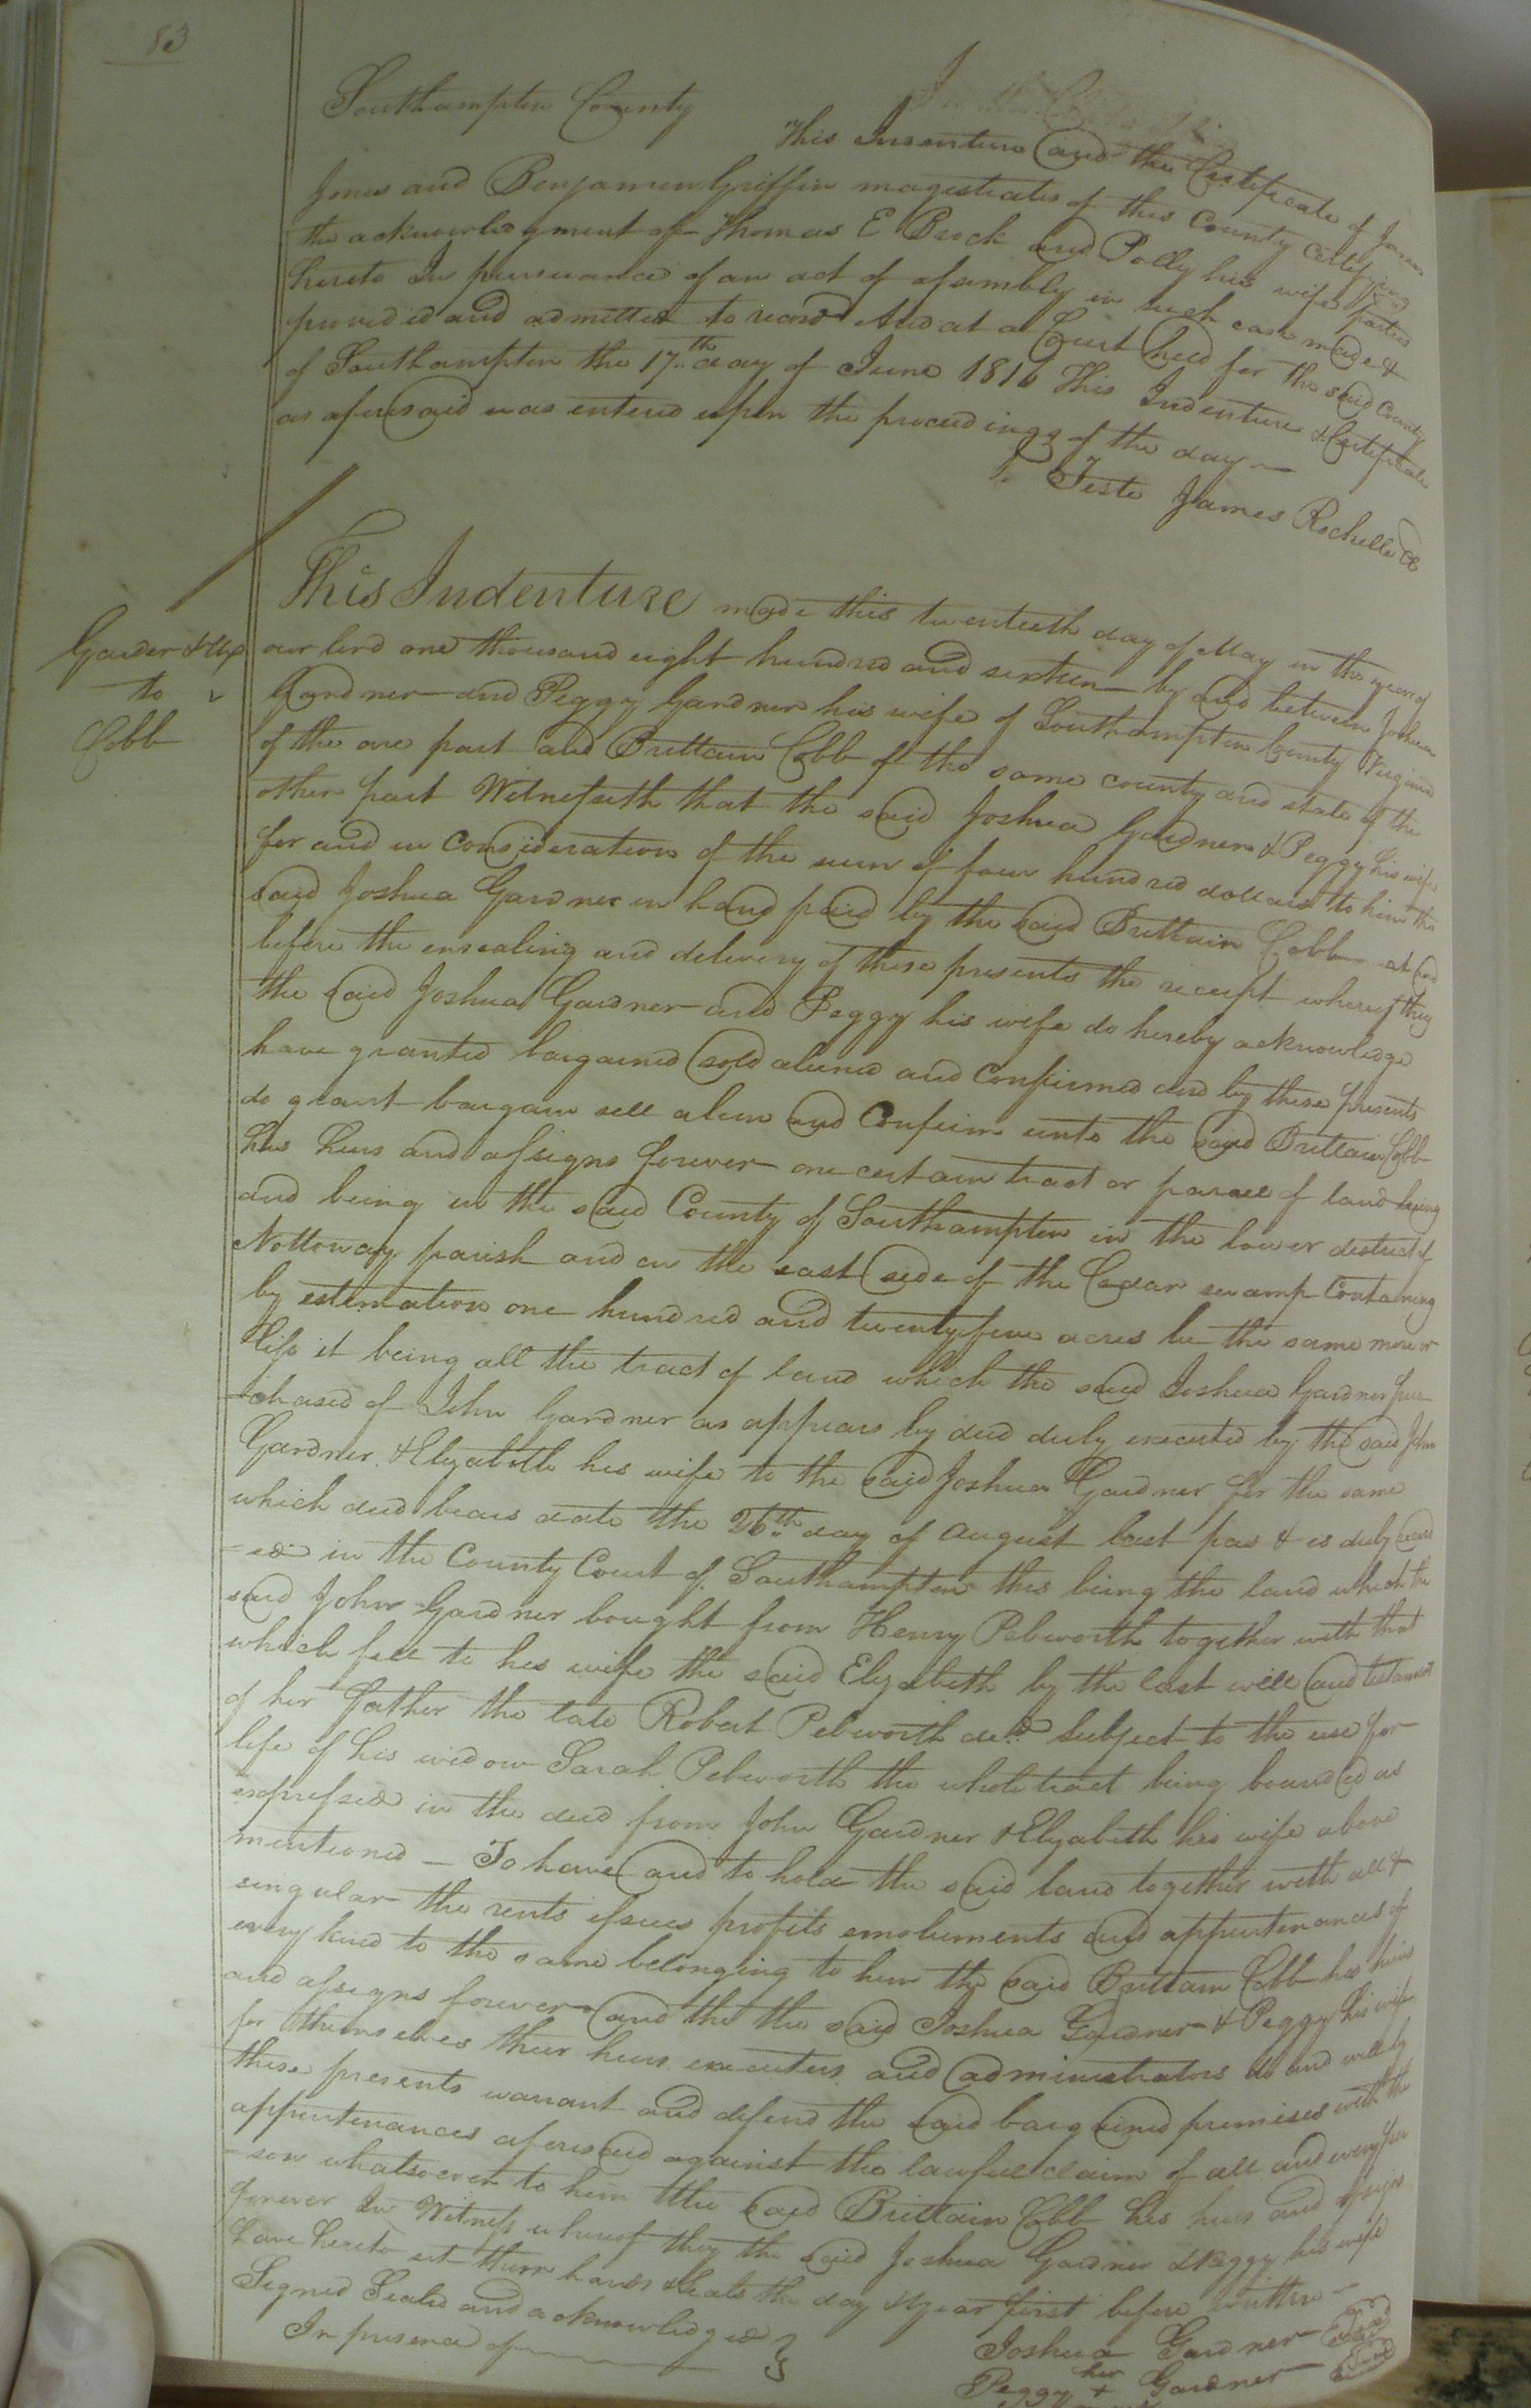 83
Southampton County
This Indenture and the Certificate of James
Jones and Benjamin Griffin magistrates of this County certifying
the acknowledgment of Thomas E Brock and Polly his wife parties
hereto In pursuance of an act of assembly in such case made &
provided and admitted to record And at a Court held for the said County
of Southampton the 17th day of June 1816 This Indenture & Certificate
as aforesaid was entered upon the proceedings of the day
Teste James Rochelle
Garder & Ux
to
Cobb
This Indenture made this twentieth day of May in the year of
our lord one thousand eight hundred and sixteen by and between Joshua
Gardner and Peggy Gardner his wife of Southampton County Virginia
of the one part and Brittain Cobb of the same county and state of the
other part Witnesseth that the said Joshua Gardner & Peggy his wife
for and in consideration of the sum of four hundred dollars to him the
said Joshua Gardner in hand paid by the said Brittain Cobb at and
before the ensealing and delivery of these presents the receipt whereof they
the said Joshua Gardner and Peggy his wife do hereby acknowledge
have granted bargained sold aliened and confirmed and by these presents
do grant bargain sell alien and Confirm unto the said Brittain Cobb
his heirs and assigns forever one certain tract or parcel of land lying
and being in the said County of Southampton in the lower district of
Nottoway parish and on the east side of the Cedar swamp Containing
by estimation one hundred and twenty five acres be the same more or
less it being all the tract of land which the said Joshua Gardner pur
-chased of John Gardner as appears by deed duly executed by the said John
Gardner & Elizabeth his wife to the said Joshua Gardner for the same
which deed bears date the 26th day of August last pas & is duly record
-ed in the County Court of Southampton this being the land which the
said John Gardner bought from Henry Pebworth together with that
which fell to his wife the said Elizabeth by the last will and testament
of her Father the late Robert Pebworth decd subject to the use for
life of his widow Sarah Pebworth the whole tract being bounded as
expressed in the deed from John Gardner & Elizabeth his wife above
mentioned — To have and to hold the said land together with all &
singular the rents issues profits emoluments and appurtenances of
every kind to the same belonging to him the said Brittain Cobb his heirs
and assigns forever and the the said Joshua Gardner & Peggy his wife
for themselves their heirs executors and administrators do and will by
these presents warrant and defend the said bargained premises with the
appurtenances aforesaid against the lawful claim of all and every per
-son whatsoever to him the said Brittain Cobb his heirs and assigns
forever In Witness whereof they the said Joshua Gardner & Peggy his wife
have hereto set their hands & seals the day & year first before written
Signed Sealed and acknowledged }
In presence of
Joshua Gardner Seal
Peggy her + Gardner Seal